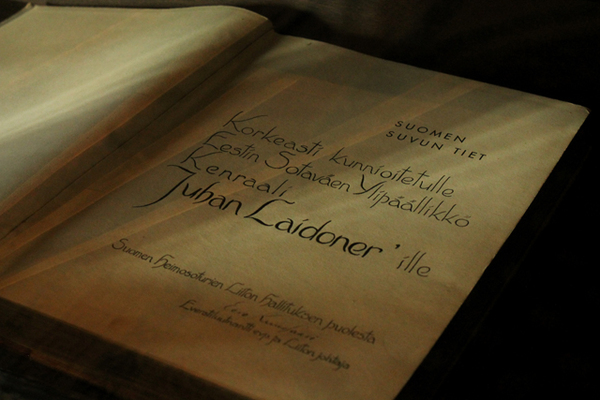 SUOMEN
SUVUN TIET
Korkeasti kunnioitetulle
Eestin Sotaväen Ylipäällikkö
Kenraali
Juhan Laidoner'ille
Suomen Heimosoturien Liiton hallituksen puolesta
Everstiluutnantti evp. ja Liiton johtaja